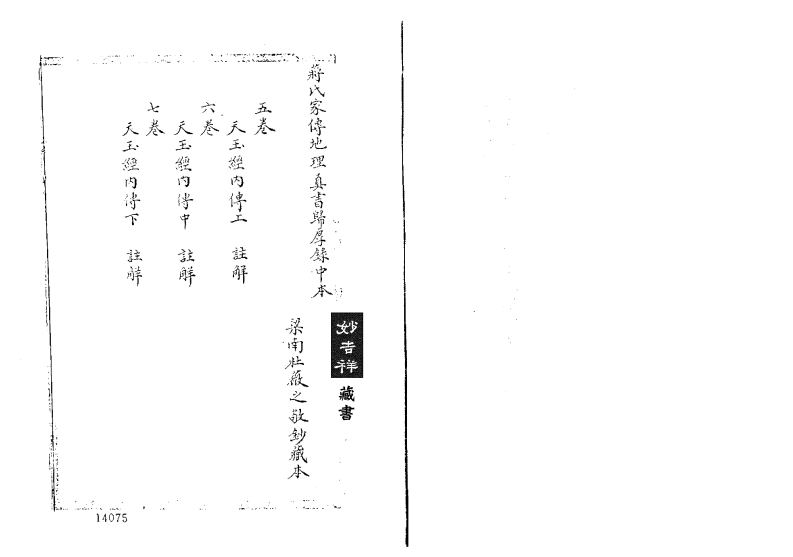 蔣氏家傳地理真書歸厚錄中本
五卷
天玉經內傳上　註解
六卷
天玉經內傳中　註解
七卷
天玉經內傳下　註解
梁南杜薇之敬鈔藏本
妙吉祥
藏書
14075